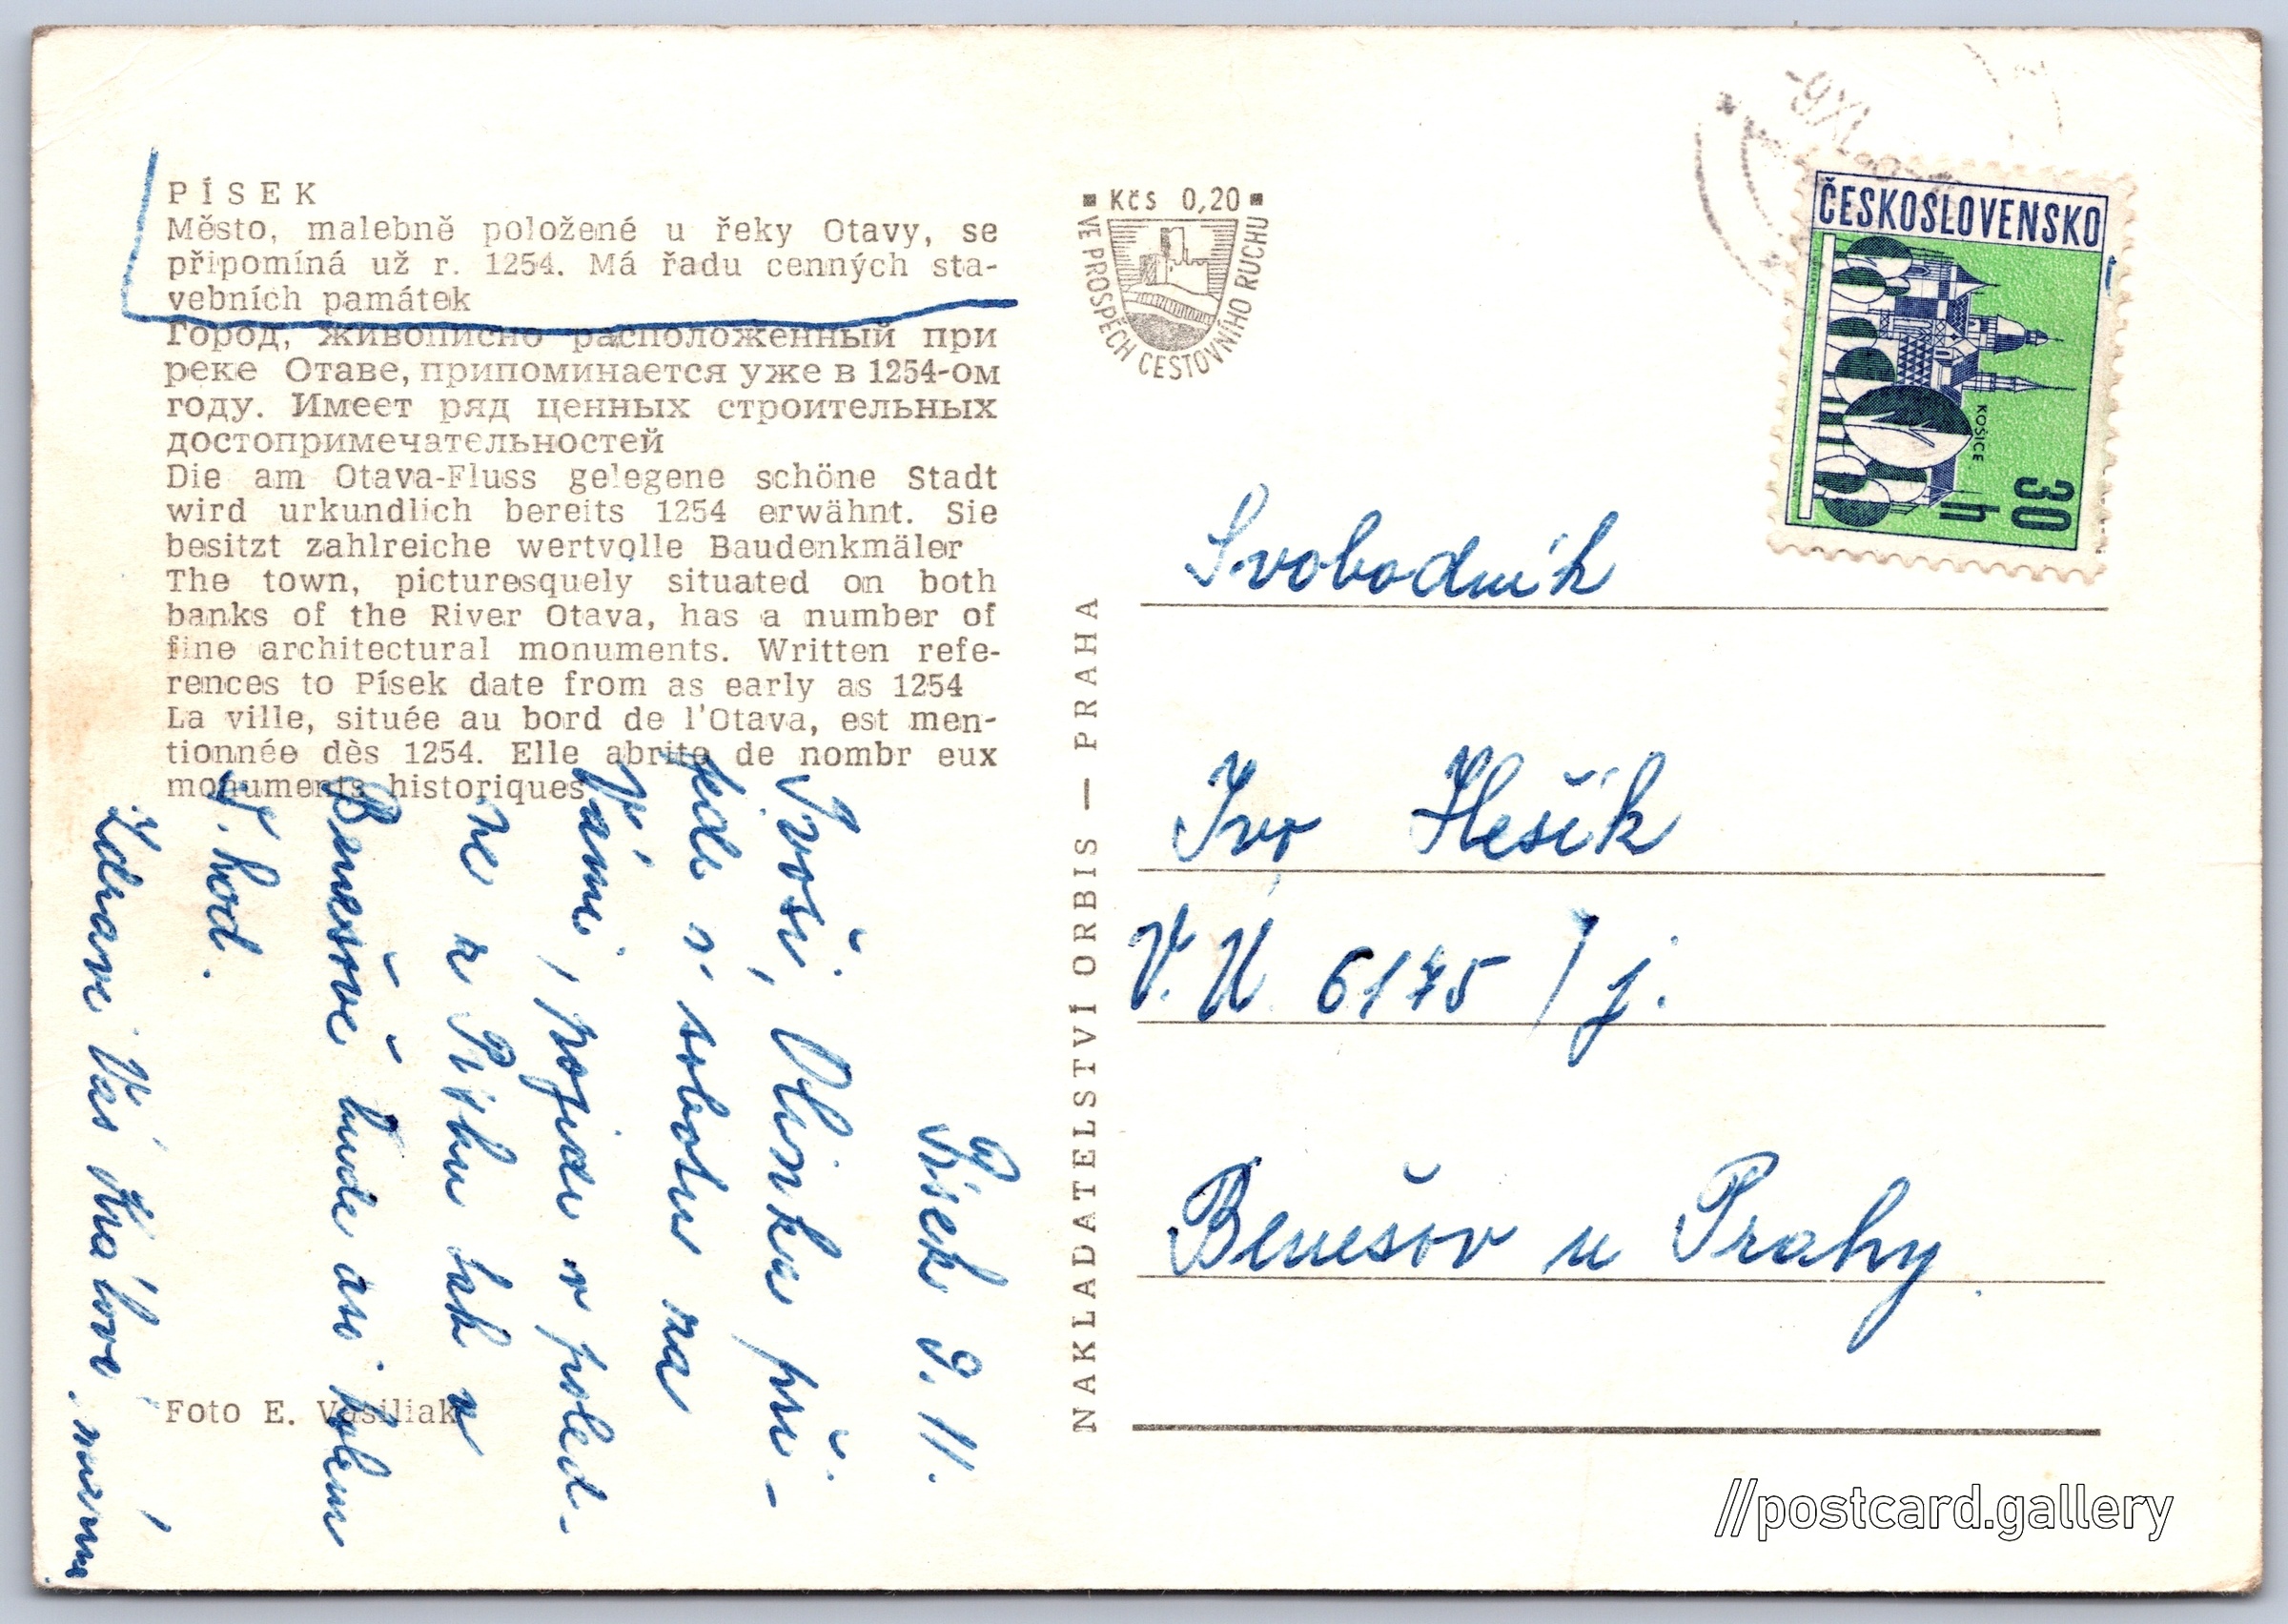 PÍSEK
Město, malebně položené u řeky Otavy, se
připomíná už r. 1254. Má řadu cenných sta-
vebních památek
Город, живописно расположенный при
реке Отаве, припоминается уже в 1254-ом
году. Имеет ряд ценных строительных
достопримечательностей
Die am Otava-Fluss gelegene schöne Stadt
wird urkundlich bereits 1254 erwähnt. Sie
besitzt zahlreiche wertvolle Baudenkmäler
The town, picturesquely situated on both
banks of the River Otava, has a number of
fine architectural monuments. Written refe-
rences to Písek date from as early as 1254
La ville, située au bord de l'Otava, est men-
tionnée dès 1254. Elle abrite de nombr eux
monuments historiques
Foto E. Vasiliak
Písek 9. 11.
Ivoši, Olinku při-
jede s. sobotu na
Vámi, pojede v poled-
ne z Písku tak v
Benešově bude asi kolem
hod.
Zdraví Vás Královi,
NAKLADATELSTVÍ ORBIS — PRAHA
Kčs 0,20
VE PROSPĚCH CESTOVNÍHO RUCHU
ČESKOSLOVENSKO
KOŠICE
30 h
Svobodník
Ivo Hešík
V.Ú. 6175 / j.
Benešov u Prahy
//postcard.gallery